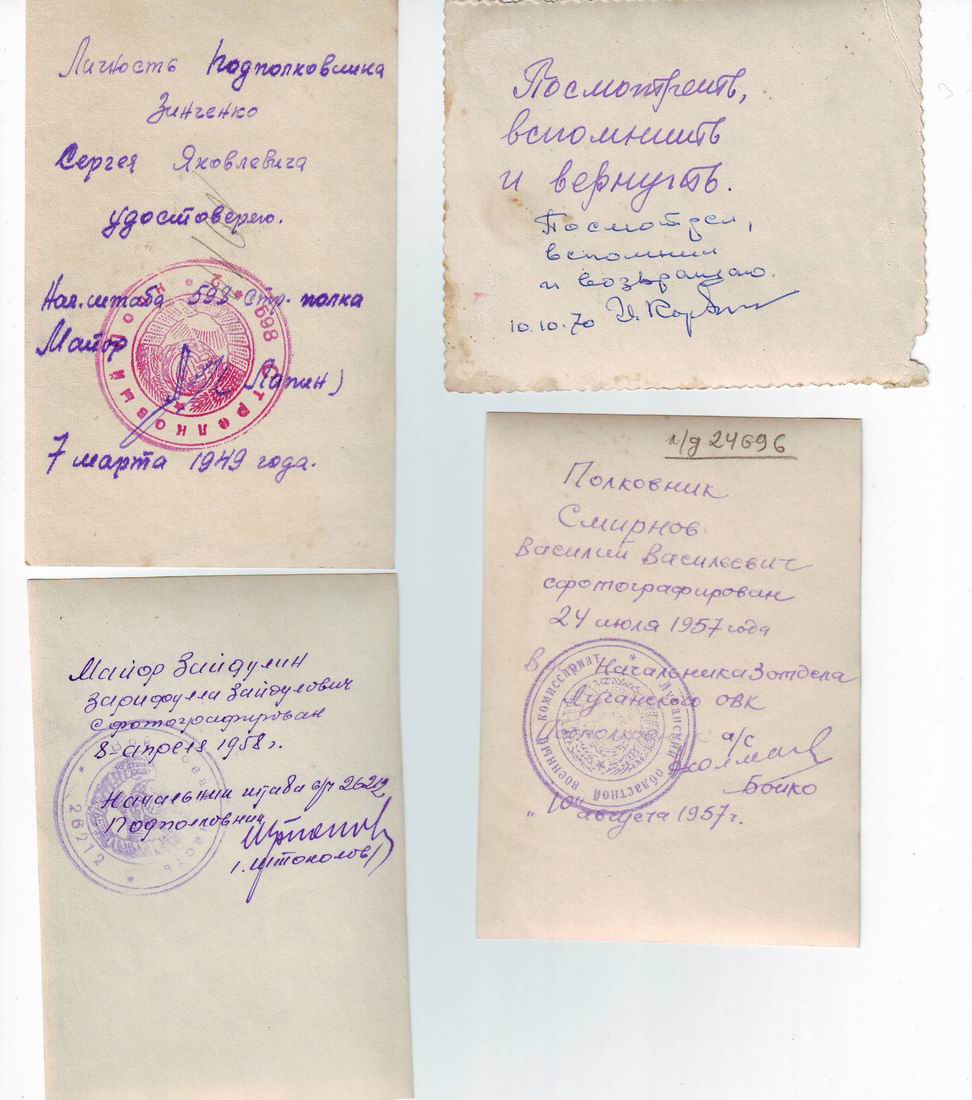 Личность Подполковника
Зинченко
Сергея Яковлевича
удостоверяю.
Нач. штаба 593 Стр. полка
Майор
(Лапин)
7 марта 1949 года.
Посмотреть,
вспомнить
и вернуть.
Посмотрел,
вспомнил
и возвращаю.
10.10.70
л/д 24696
Полковник
Смирнов
Василий Васильевич
сфотографирован
24 июля 1957 года
Начальника 3 отдела
Луганского ОВК
Подполковник а/с
Бойко
"10" августа 1957 г.
Луганский областной военный комиссариат
Майор Зайдулин
Зарифулла Зайдулович
сфотографирован
8 апреля 1958 г.
Начальник штаба в/ч 26212
Подполковник
(Штоколов)
26212